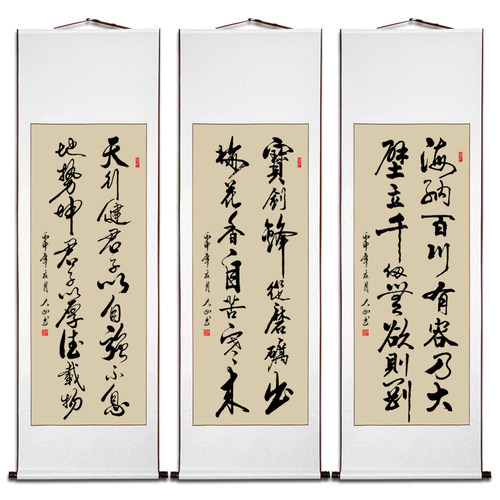 天行健君子以自强不息
地勢坤君子以厚德載物
丙申年
寶劍鋒從磨礪出
梅花香自苦寒来
丙申年
海納百川有容乃大
壁立千仞無欲則剛
丙申年